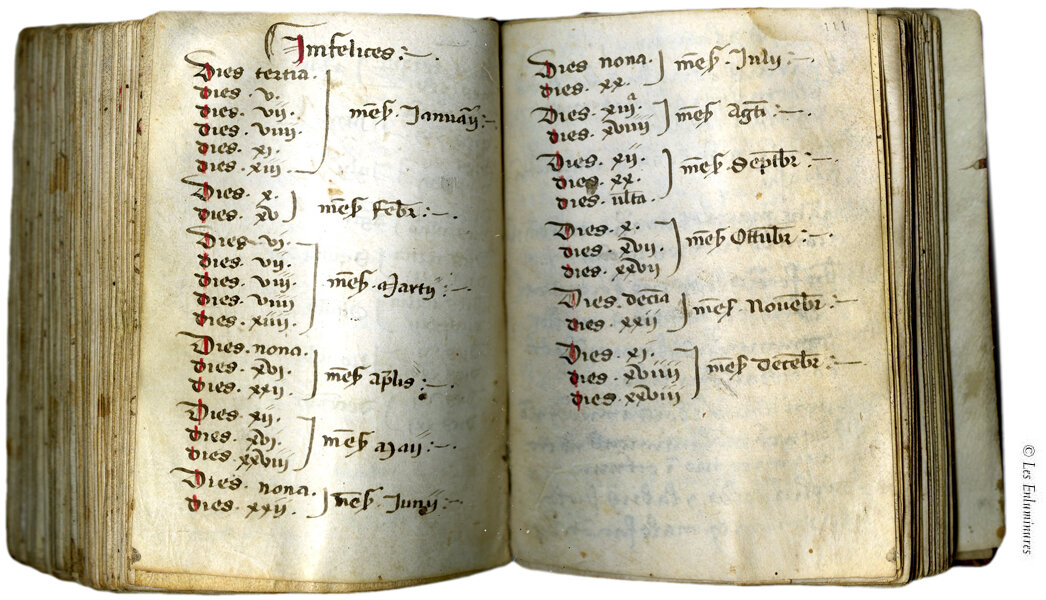 Imfelices:~
Dies tertia.
Dies. v.
Dies. vii.
Dies. viiii.
Dies. xi.
Dies. xiii.
mẽß. Ianuãii:~
Dies. x.
Dies. xv
mẽß febr̃:~
Dies. vi.
Dies. vii.
Dies. viii.
Dies. viiii
Dies. xiiii.
mẽß Martii
Dies. nona.
Dies. xvi.
Dies. xxii.
mẽß ap̃lis:~
Dies. xii.
Dies. xvi.
Dies. xxviii
mẽß Maii:~
Dies. nona.
Dies. xxii.
mẽß Iunii:~
III
Dies nona
Dies. xx.
mẽß. Iulii:~
Dies. xiii
Dies. xviiii
mẽß Agti:~
Dies. xii.
Dies. xx.
Dies. ult̃a.
mẽß. Septẽbr:~
Dies. x.
Dies. xvii.
Dies. xxvii
mẽß Ottubr̃:~
Dies. decia
Dies. xxii
mẽß Nouẽbr:~
Dies. xi.
Dies. xviiii
Dies. xxviii
mẽß Decẽbr:~
© Les Enluminures